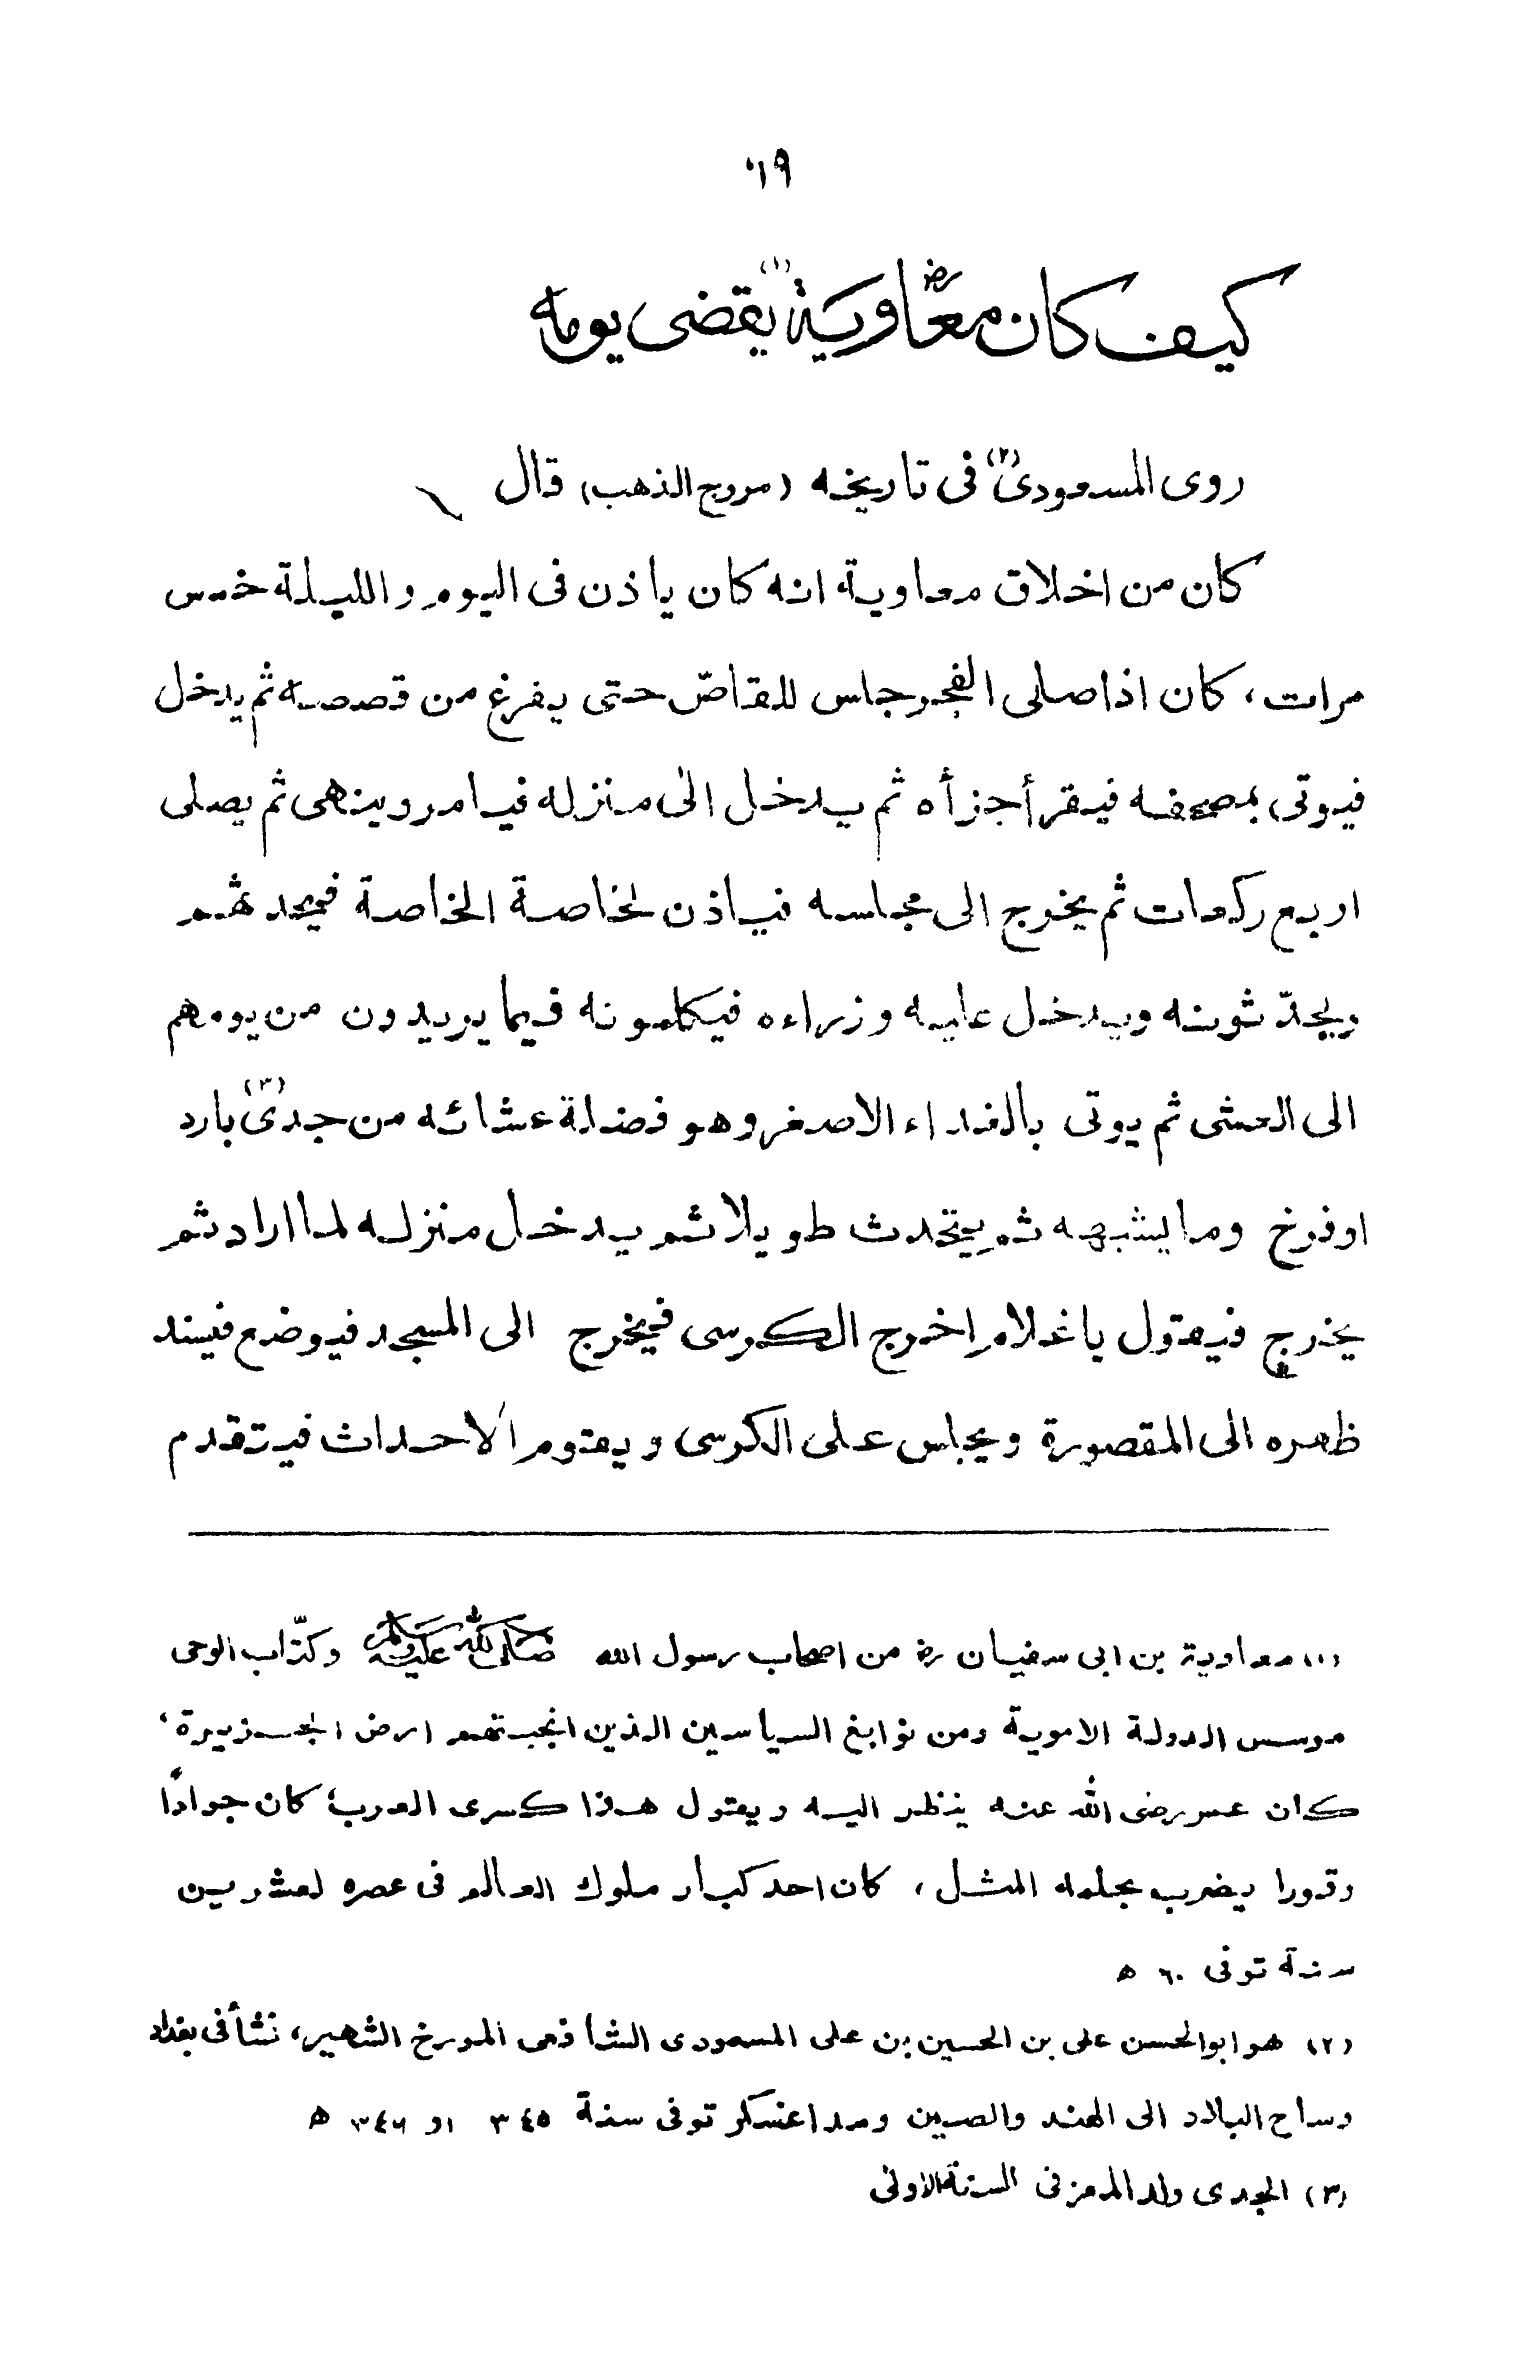 ٩١
كيف كان معاوية رض (١) يقضى يومه
روى المسعودى (٢) فى تاريخه (مروج الذهب) قال
كان من اخلاق معاوية انه كان ياذن فى اليوم والليلة خمس
مرات، كان اذا صلى الفجر جلس للقاصّ حتى يفرغ من قصصه ثم يدخل
فيوتى بمصحفه فيقرأ جزأه ثم يدخل الى منزله فيامر وينهى ثم يصلى
اربع ركعات ثم يخرج الى مجلسه فياذن لخاصة الخاصة فيحدثهم
ويحدّثونه ويدخل عليه وزراءه فيكلمونه فيما يريدون من يومهم
الى العشى ثم يوتى بالغداء الاصغر وهو فضلة عشائه من جدى (٣) بارد
اوفرخ وما يشبهه ثم يتحدث طويلا ثم يدخل منزله لما اراد ثم
يخرج فيقول يا غلام اخرج الكرسى فيخرج الى المسجد فيوضع فيسند
ظهره الى المقصورة ويجلس على الكرسى ويقوم الاحداث فيتقدم
(١) معاوية بن ابى سفيان رض من اصحاب رسول الله صلى الله عليه وسلم وكتّاب الوحى
موسس الدولة الاموية ومن نوابغ السياسين الذين انجبتهم ارض الجزيرة،
كان عمر رضى الله عنه ينظر اليه ويقول هذا كسرى العرب، كان جوادًا
وقورا يضرب بحلمه المثل، كان احد كبار ملوك العالم فى عصره لعشرين
سنة توفى ٦٠ ه
(٢) هو ابو الحسن على بن الحسين بن على المسعودى الشافعى المورخ الشهير، نشأ فى بغداد
وساح البلاد الى الهند والصين ومداغسكر توفى سنة ٣٤٥ او ٣٤٦ ه
(٣) الجدى ولد المعز فى السنة الاولى